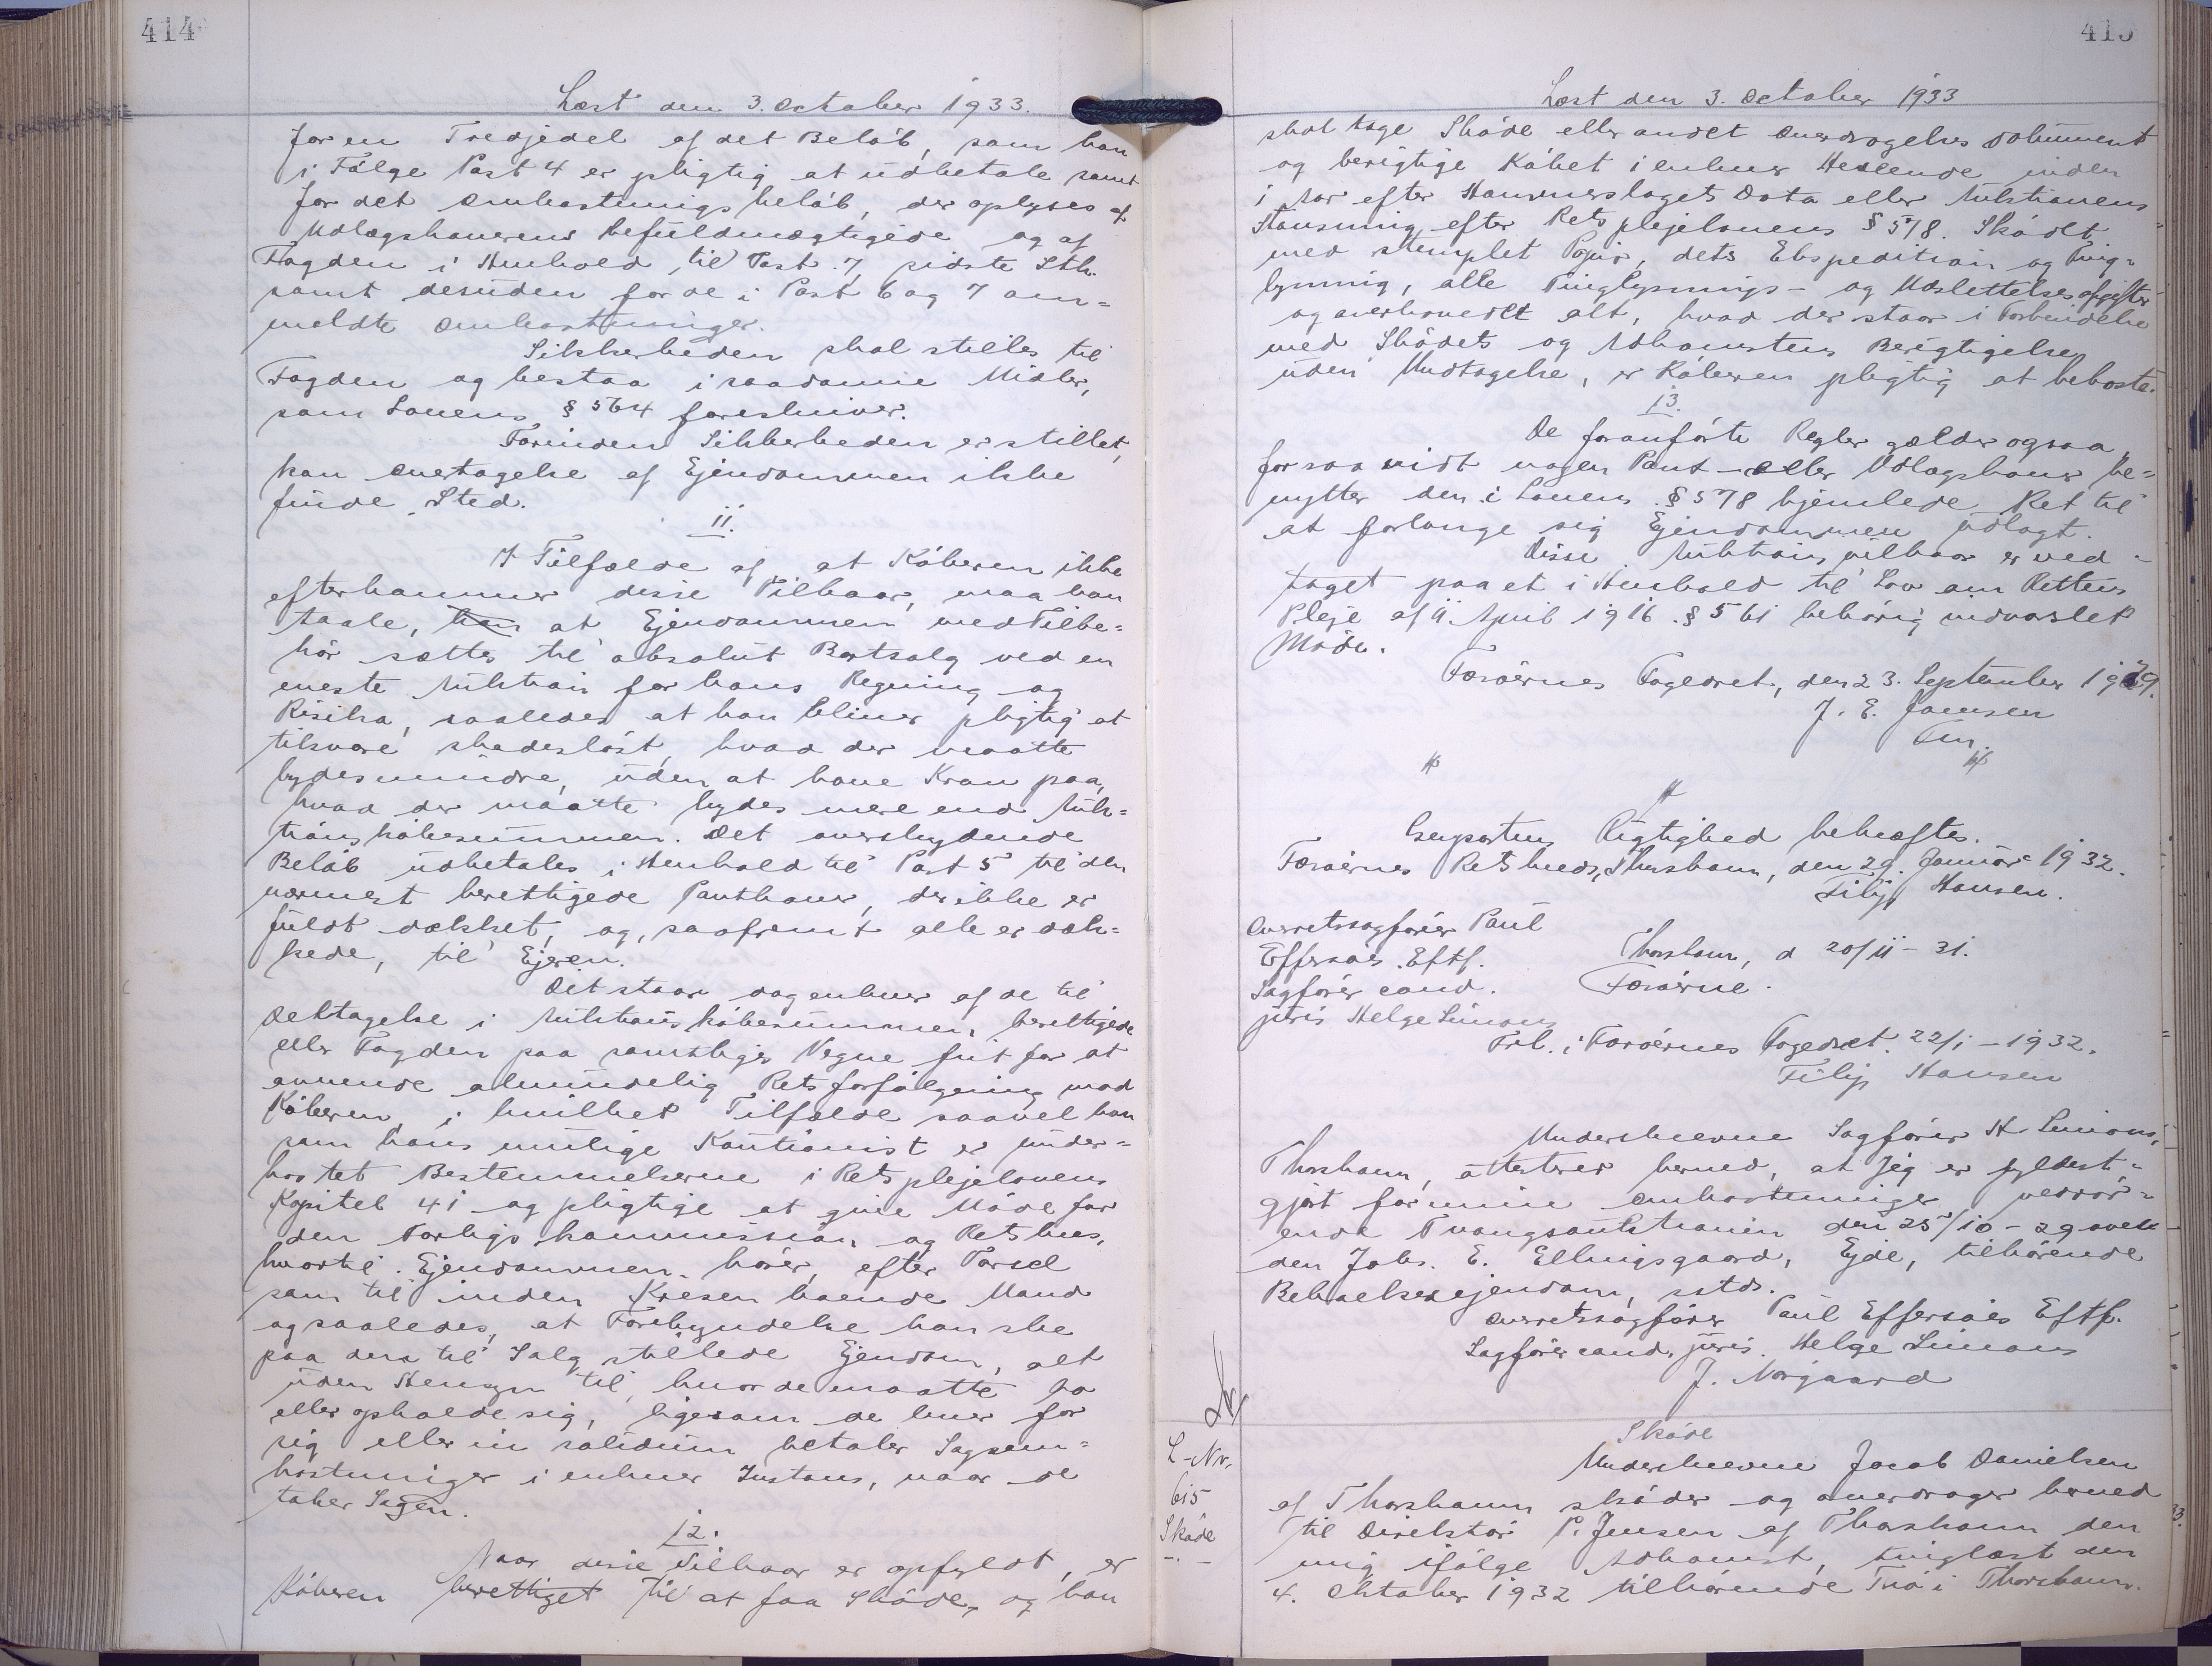 414
Læst den 3. October 1933.
for en Tredjedel af det Beløb, som han
i Følge Post 4 er pligtig at udbetale samt
for det Omkostningsbeløb, der oplyses af
Udlægshaverens befuldmægtigede og af
Fogden i Henhold til Post 7, sidste Stk.
samt desuden for de i Post 6 og 7 om=
meldte Omkostninger.
Sikkerheden skal stilles til
Fogden og bestaa i saadanne Midler,
som Lovens § 564 foreskriver.
Forinden Sikkerheden er stillet,
kan Overtagelse af Ejendommen ikke
finde Sted.
11.
I Tilfælde af at Køberen ikke
efterkommer disse Vilkaar, maa han
taale, at Ejendommen med Tilbe=
hør sættes til absolut Bortsalg ved en
eneste Auktion for hans Regning og
Risiko, saaledes at han bliver pligtig at
tilsvare skadesløst, hvad der maatte
bydes mindre, uden at have Krav paa,
hvad der maatte bydes mere end Auk=
tionskøbesummen. Det overskydende
Beløb udbetales i Henhold til Post 5 til den
nærmest berettigede Panthaver, der ikke er
fuldt dækket, og, saafremt alle er dæk=
kede, til Ejeren.
Det staar dog enhver af de til
Deltagelse i Auktionskøbesummen berettigede
eller Fogden paa samtliges Vegne frit for at
anvende almindelig Retsforfølgning mod
Køberen, i hvilket Tilfælde saavel han
som hans mulige Kautionist er under=
kastet Bestemmelserne i Retsplejelovens
Kapitel 41 og pligtige at give Møde for
den Forligskommission og Retskreds,
hvortil Ejendommen hører, efter Varsel
som til inden Kredsen boende Mand
og saaledes, at Forkyndelse kan ske
paa den til Salg stillede Ejendom, alt
uden Hensyn til, hvor de maatte bo
eller opholde sig, ligesom de hver for
sig eller in solidum betaler Sagsom=
kostninger i enhver Instans, naar de
taber Sagen.
12.
Naar disse Vilkaar er opfyldt, er
Køberen berettiget til at faa Skøde, og han
415
Læst den 3. October 1933
skal tage Skøde eller andet Overdragelses Dokument
og berigtige Købet i enhver Henseende inden
1 Aar efter Hammerslagets Dato eller Auktionens
Stansning efter Retsplejelovens § 578. Skødet
med stemplet Papir, dets Ekspedition og Ting=
lysning, alle Tinglysnings- og Udslettelsesafgifter
og overhovedet alt, hvad der staar i Forbindelse
med Skødets og Adkomstens Berigtigelse,
uden Undtagelse, er Køberen pligtig at bekoste.
13.
De foranførte Regler gælder ogsaa,
forsaavidt nogen Pant- eller Udlægshaver be=
nytter den i Lovens § 578 hjemlede Ret til
at forlange sig Ejendommen udlagt.
Disse Auktionsvilkaar er ved-
taget paa et i Henhold til Lov om Rettens
Pleje af 11. April 1916 § 561 behørig indvarslet
Møde.
Færøernes Fogedret, den 23. September 1929.
J. E. Jamsen
Genpartens Rigtighed bekræftes.
Færøernes Retskreds, Thorshavn, den 29. Januar 1932.
Filip Hansen.
Overretssagfører Paul
Effersøes Eftf.
Sagfører cand.
juris Helge Simons
Thorshavn, d 20/11-31.
Færøerne.
Frl. i Færøernes Fogedret. 22/1-1932.
Filip Hansen
Underskrevne Sagfører H. Simons,
Thorshavn, attesterer herved, at jeg er fyldest=
gjort for mine Omkostninger vedrør=
ende Tvangsauktionen den 25/10-29 over
den Johs. E. Ellingsgaard, Ejde, tilhørende
Beboelsesejendom, sstds.
Overretssagfører Paul Effersøes Eftf.
Sagfører cand. juris. Helge Simons
J. Norgaard
L-Nr.
615
Skøde
Skøde
Underskrevne Jacob Danielsen
af Thorshavn skøder og overdrager herved
til Direktør P. Jensen af Thorshavn den
mig ifølge Adkomst, tinglæst den
4. Oktober 1932 tilhørende Trø i Thorshavn.